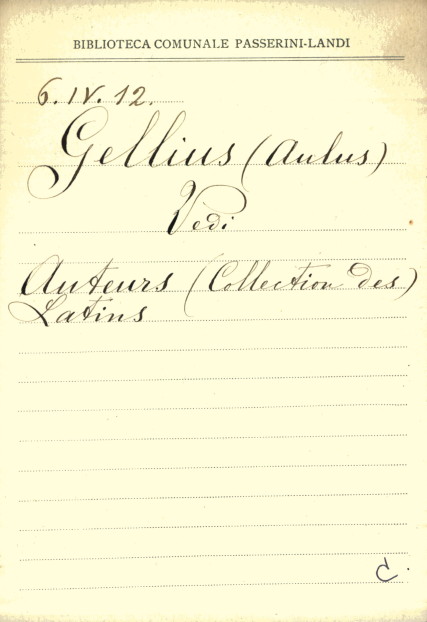 BIBLIOTECA COMUNALE PASSERINI-LANDI
6.IV.12.
Gellius (Aulus)
Vedi
Auteurs (Collection des)
Latins
C.